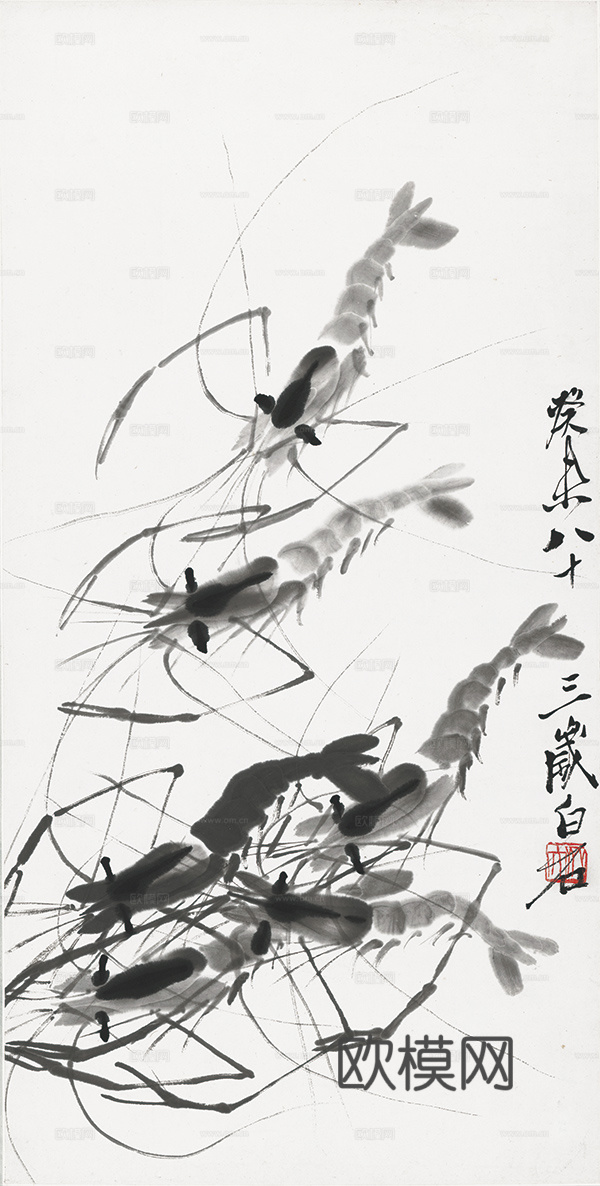 癸未八十
三歲白石
欧模网